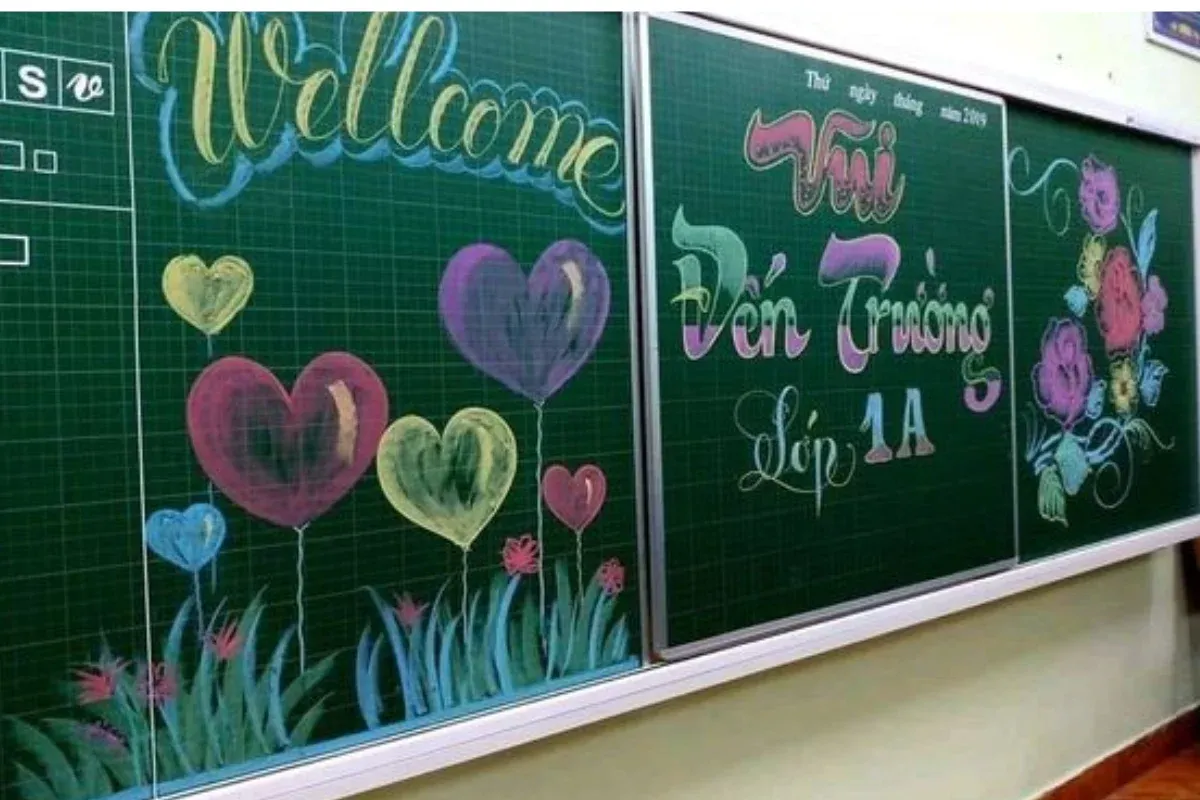 S
Wellcome
Thứ ngày tháng năm 2019
Vui
Đến Trường
Lớp 1A